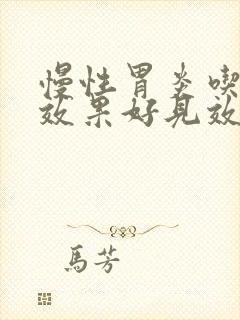 慢性胃炎喫
效果好見效
馬芳